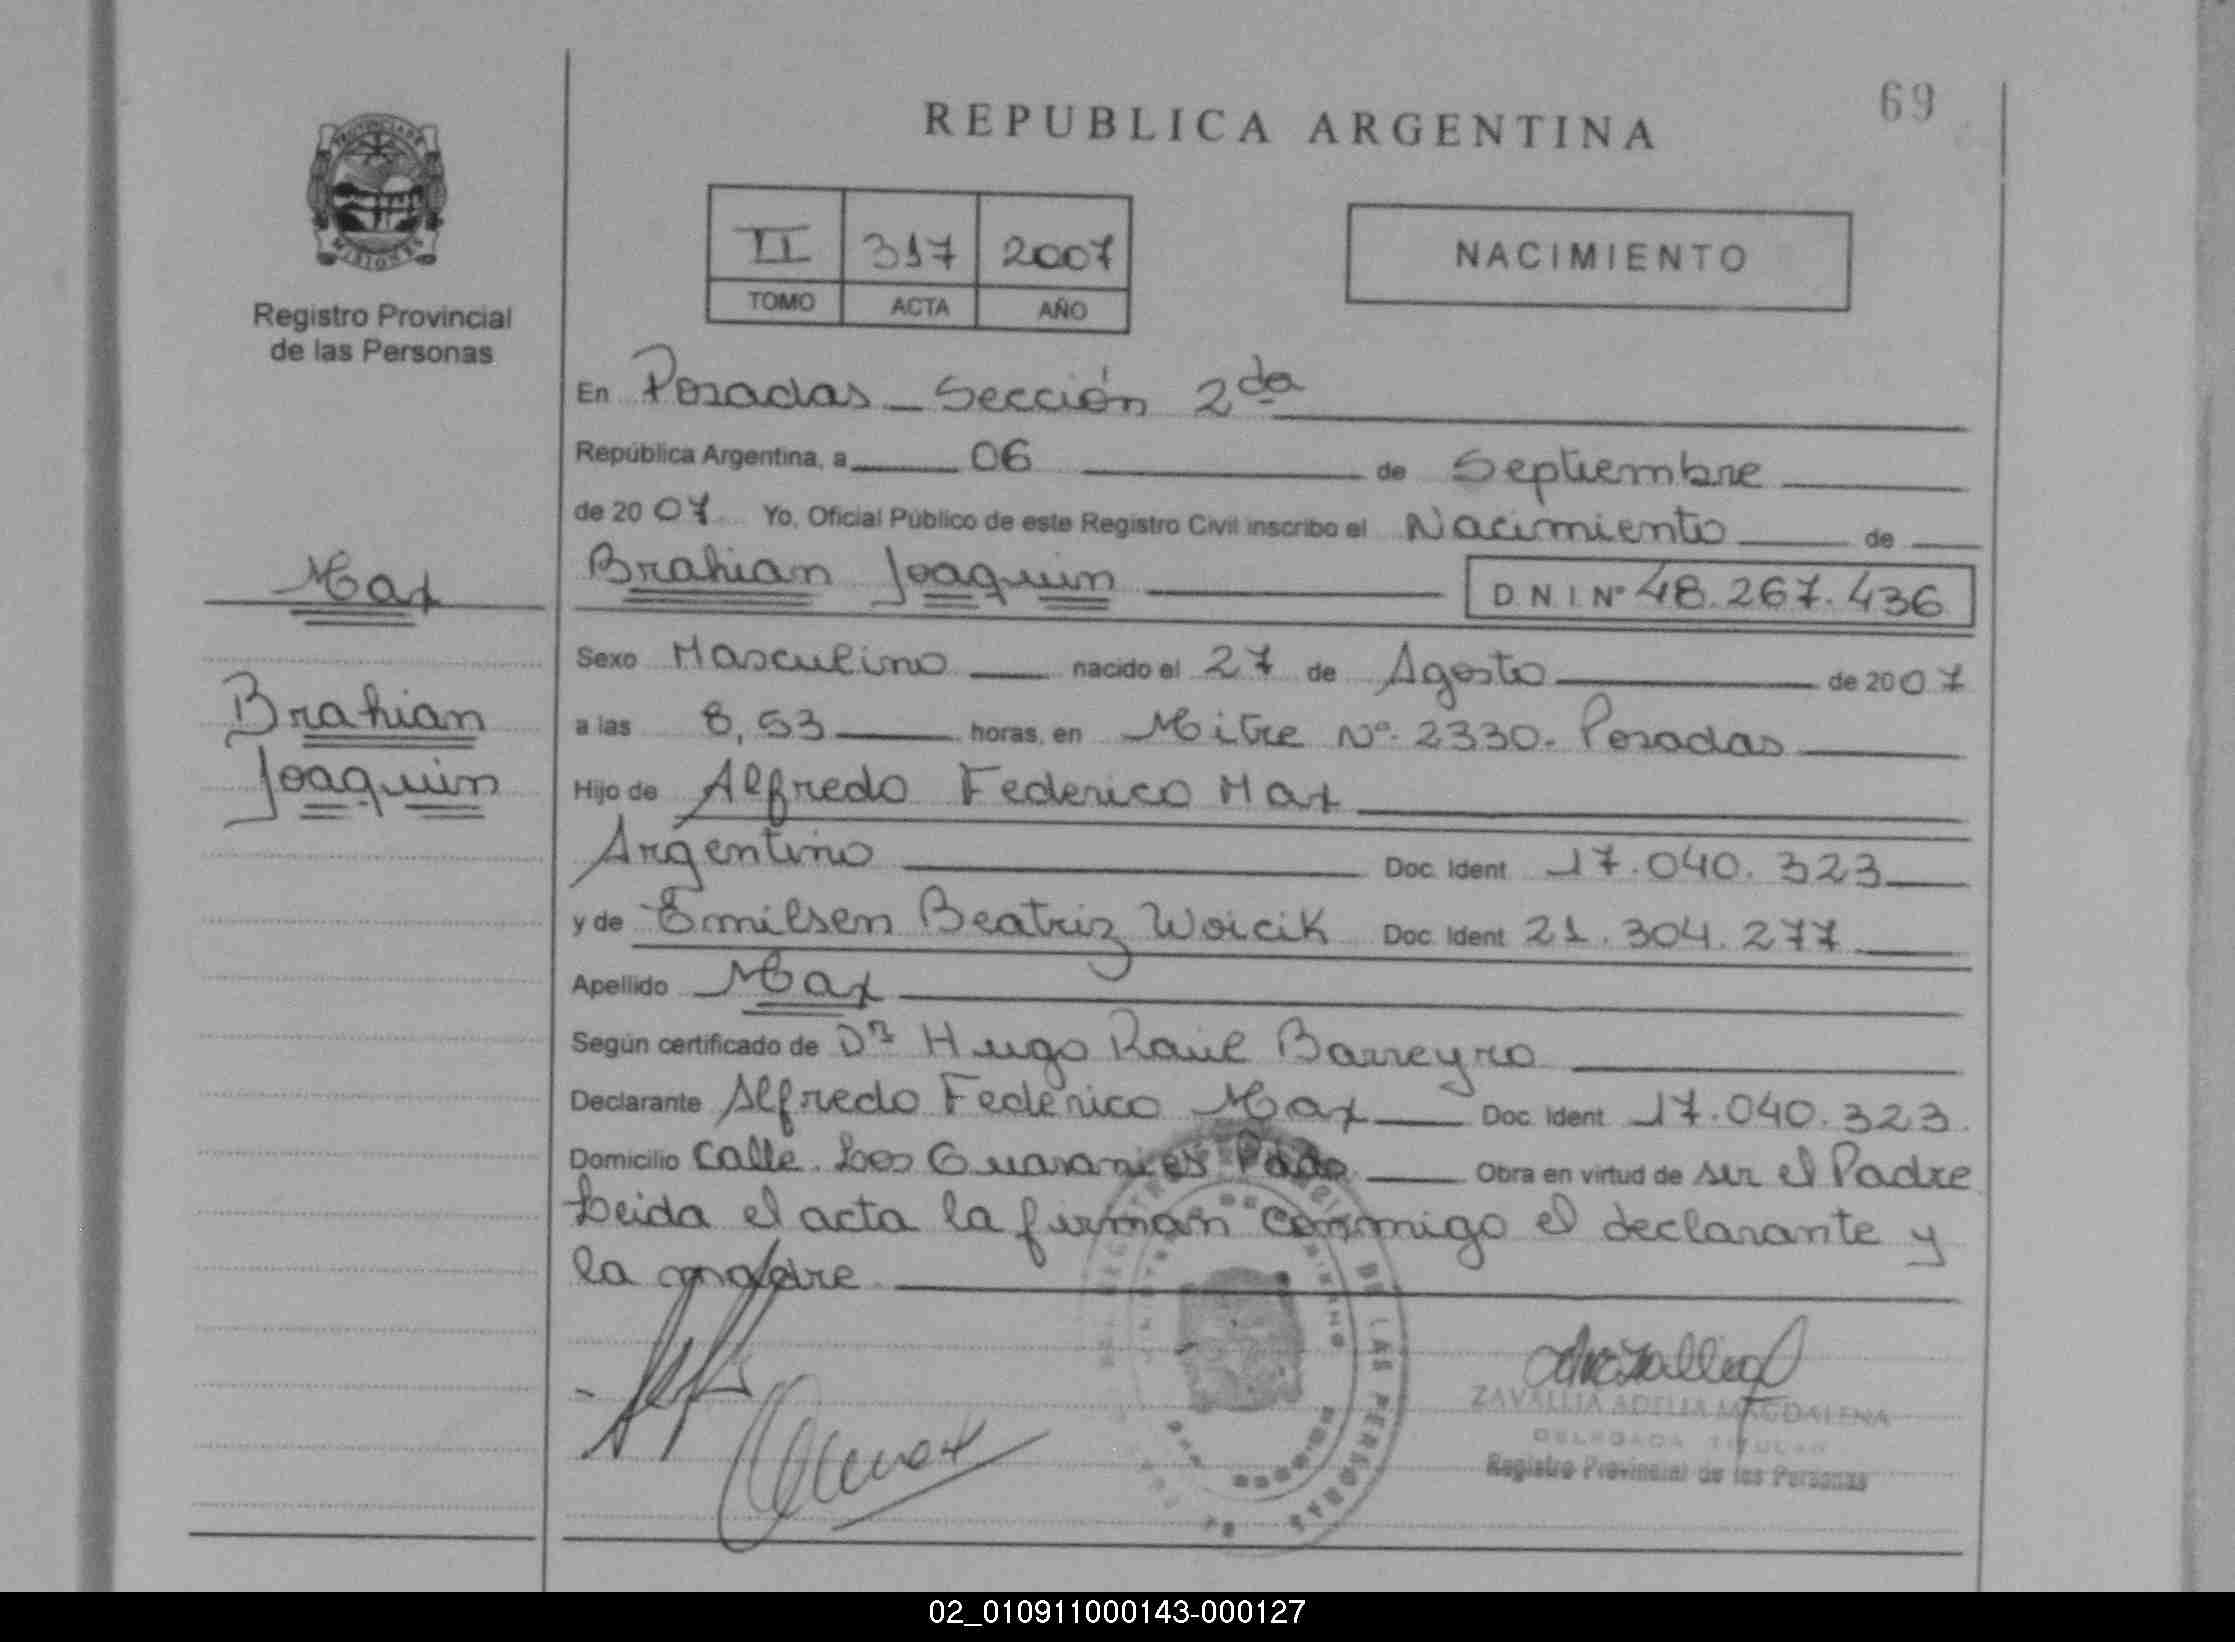 69
REPUBLICA ARGENTINA
PROVINCIA DE
MISIONES
Registro Provincial
de las Personas
II 317 2007
TOMO ACTA AÑO
NACIMIENTO
En Posadas - Sección 2da
República Argentina, a 06 de Septiembre
de 2007 Yo, Oficial Público de este Registro Civil inscribo el Nacimiento de
Max
Brahian Joaquin D N I Nº 48.267.436
Sexo Masculino nacido el 27 de Agosto de 2007
Brahian
Joaquin
a las 8,53 horas, en Mitre Nº 2330. Posadas
Hijo de Alfredo Federico Max
Argentino Doc. Ident 17.040.323
y de Emilsen Beatriz Woicik Doc. Ident 21.304.277
Apellido Max
Según certificado de Dr Hugo Raul Barreyro
Declarante Alfredo Federico Max Doc. Ident 17.040.323
Domicilio Calle Los Guaranies Pdas Obra en virtud de ser el Padre
Leida el acta la firman conmigo el declarante y
la madre
DE LAS PERSONAS
ZAVALLIA ADELIA MAGDALENA
DELEGADA TITULAR
Registro Provincial de las Personas
02_010911000143-000127